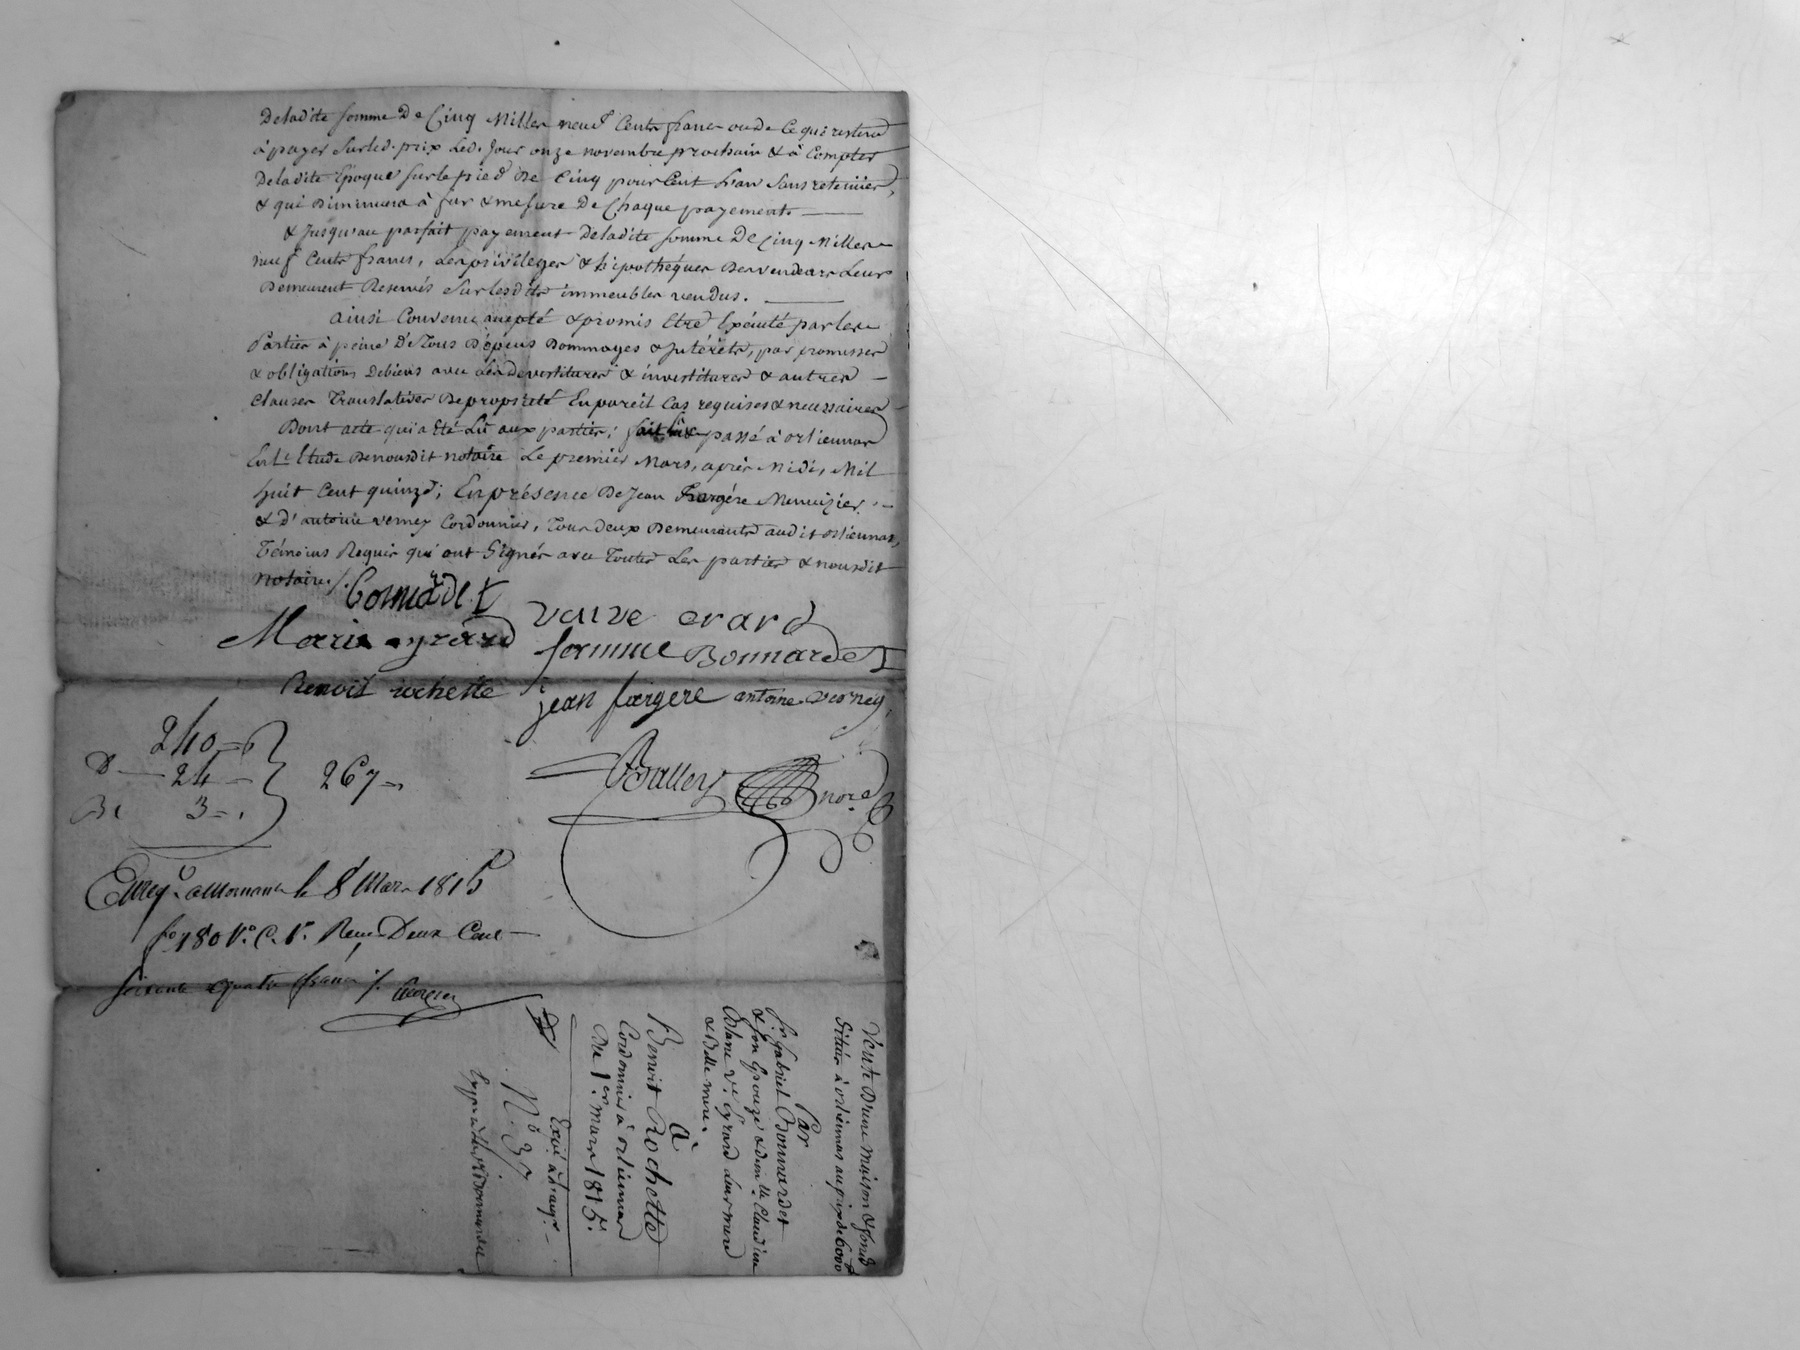 Deladite somme De Cinq Milles neuf Cents francs ou de ce qui restera
à payer sur led. prix Led. Jour onze novembre prochain & à Compter
Deladite Epoque sur le pied De Cinq pour Cent fran sans retenües,
& qui Diminuera à fur & mesure De Chaque payements
& Jusqu'au parfait payement Deladite somme De Cinq Milles
neuf Cents francs, Les privileges & hipothéques Des vendeurs Leurs
Demeurent Reservés sur lesdits immeubles vendus.
ainsi Convenu accepté & promis Etre Exécuté par les
Parties à peine De Tous Dépens Dommages & Intérêts, par promesses
& obligations De biens avec Les Devestitures & investitures & autres
Clauses Translatives De propriété En pareil Cas requises & necessaires
Dont acte qui a Eté Lû aux parties; fait Lû & passé à orliennas
En L'Etude De nousdit notaire Le premier Mars, après Midi, Mil
huit Cent quinze; En présence De Jean Fargére Menuizier
& D'antoine verney Cordonnier, Tous Deux Demeurants audit orliennas,
Témoins Requis qui ont Signés avec Toutes Les parties & nousdit
notaire./.
Bonnardet
veuve erard
Marie eyrard
famme Bonnardet
Benoit rochette
jean fargere antoine verney
240
D 24
3
267
Balley nore
Enreg. à Mornant le 8 Mars 1815
fo 180 Vo. C. 1re. Reçu Deux Cent
soixante quatre francs ./.
Vente D'une maison & fonds
Situés à orliennas au prix de 6000
Par
Sr. gabriel Bonnardet
& son Epouze & dem.lle Claudine
Blanc Ve. Eyrard Leur mere
& Belle mere.
à
Benoit Rochette
Cordonnier à orliennas
Du 1er mars 1815.
No. 37